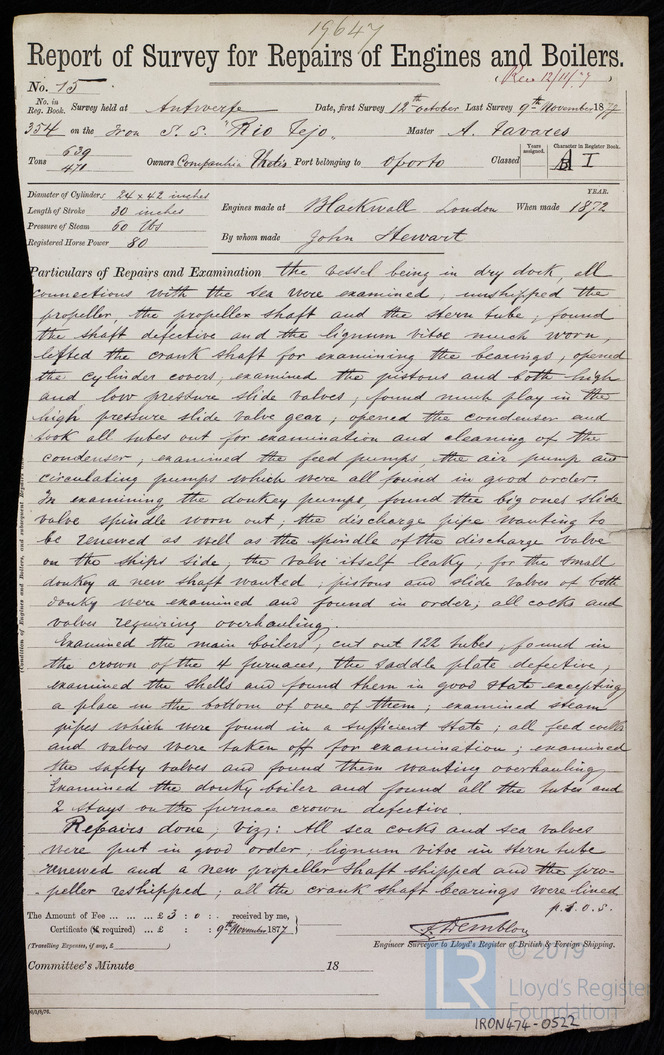 19647
Report of Survey for Repairs of Engines and Boilers.
(Rec 12/11/77)
No. 15
No. in Reg. Book. Survey held at Antwerpe Date, first Survey 12th october Last Survey 9th November 1877
354 on the Iron S. S. "Rio Tejo" Master A. Tavares
Tons 639 / 471 Owners Companhia Thetis Port belonging to oporto Classed Years assigned. Character in Register Book. A I
Diameter of Cylinders 24 x 42 inches
Length of Stroke 30 inches
Pressure of Steam 60 lbs
Registered Horse Power 80
Engines made at Blackwall London When made YEAR. 1872
By whom made John Stewart
Particulars of Repairs and Examination the vessel being in dry dock, all
connections with the sea were examined, unshipped the
propeller, the propeller shaft and the stern tube, found
the shaft defective and the lignum vitoe much worn,
lifted the crank shaft for examining the bearings, opened
the cylinder covers, examined the pistons and both high
and low pressure slide valves; found much play in the
high pressure slide valve gear, opened the condenser and
took all tubes out for examination and cleaning of the
condenser, examined the feed pumps, the air pump and
circutating pumps which were all found in good order.
In examining the donkey pumps, found the big ones slide
valve spindle worn out; the discharge pipe wanting to
be renewed as well as the spindle of the discharge valve
on the ships side, the valve itself leaky; for the small
donkey a new shaft wanted; pistons and slide valves of both
donky were examined and found in order; all cocks and
valves requiring overhauling.
Examined the main boilers; cut out 122 tubes, found in
the crown of the 4 furnaces, the saddle plate defective,
examined the shells and found them in good state excepting
a place in the bottom of one of them; examined steam
pipes which were found in a sufficient state; all feed cocks
and valves were taken off for examination; examined
the safity valves and found them wanting overhauling
Examined the donky boiler and found all the tubes and
2 stays on the furnace crown defective
Repairs done, viz: All sea cocks and sea valves
were put in good order, lignum vitoe in stern tube
renewed and a new propeller shaft shipped and the pro-
-peller reshipped; all the crank shaft bearings were lined
p. t. o. s.
(Condition of Engines and Boilers, and subsequent Repairs
The Amount of Fee ... ... ... £ 3 : 0 : . received by me,
Certificate (if required) ... £ : : 9th November 1877
(Travelling Expenses, if any, £ )
Engineer Surveyor to Lloyd's Register of British & Foreign Shipping.
Committee's Minute 18
© 2019
LR
Lloyd's Register
Foundation
IRON474-0522